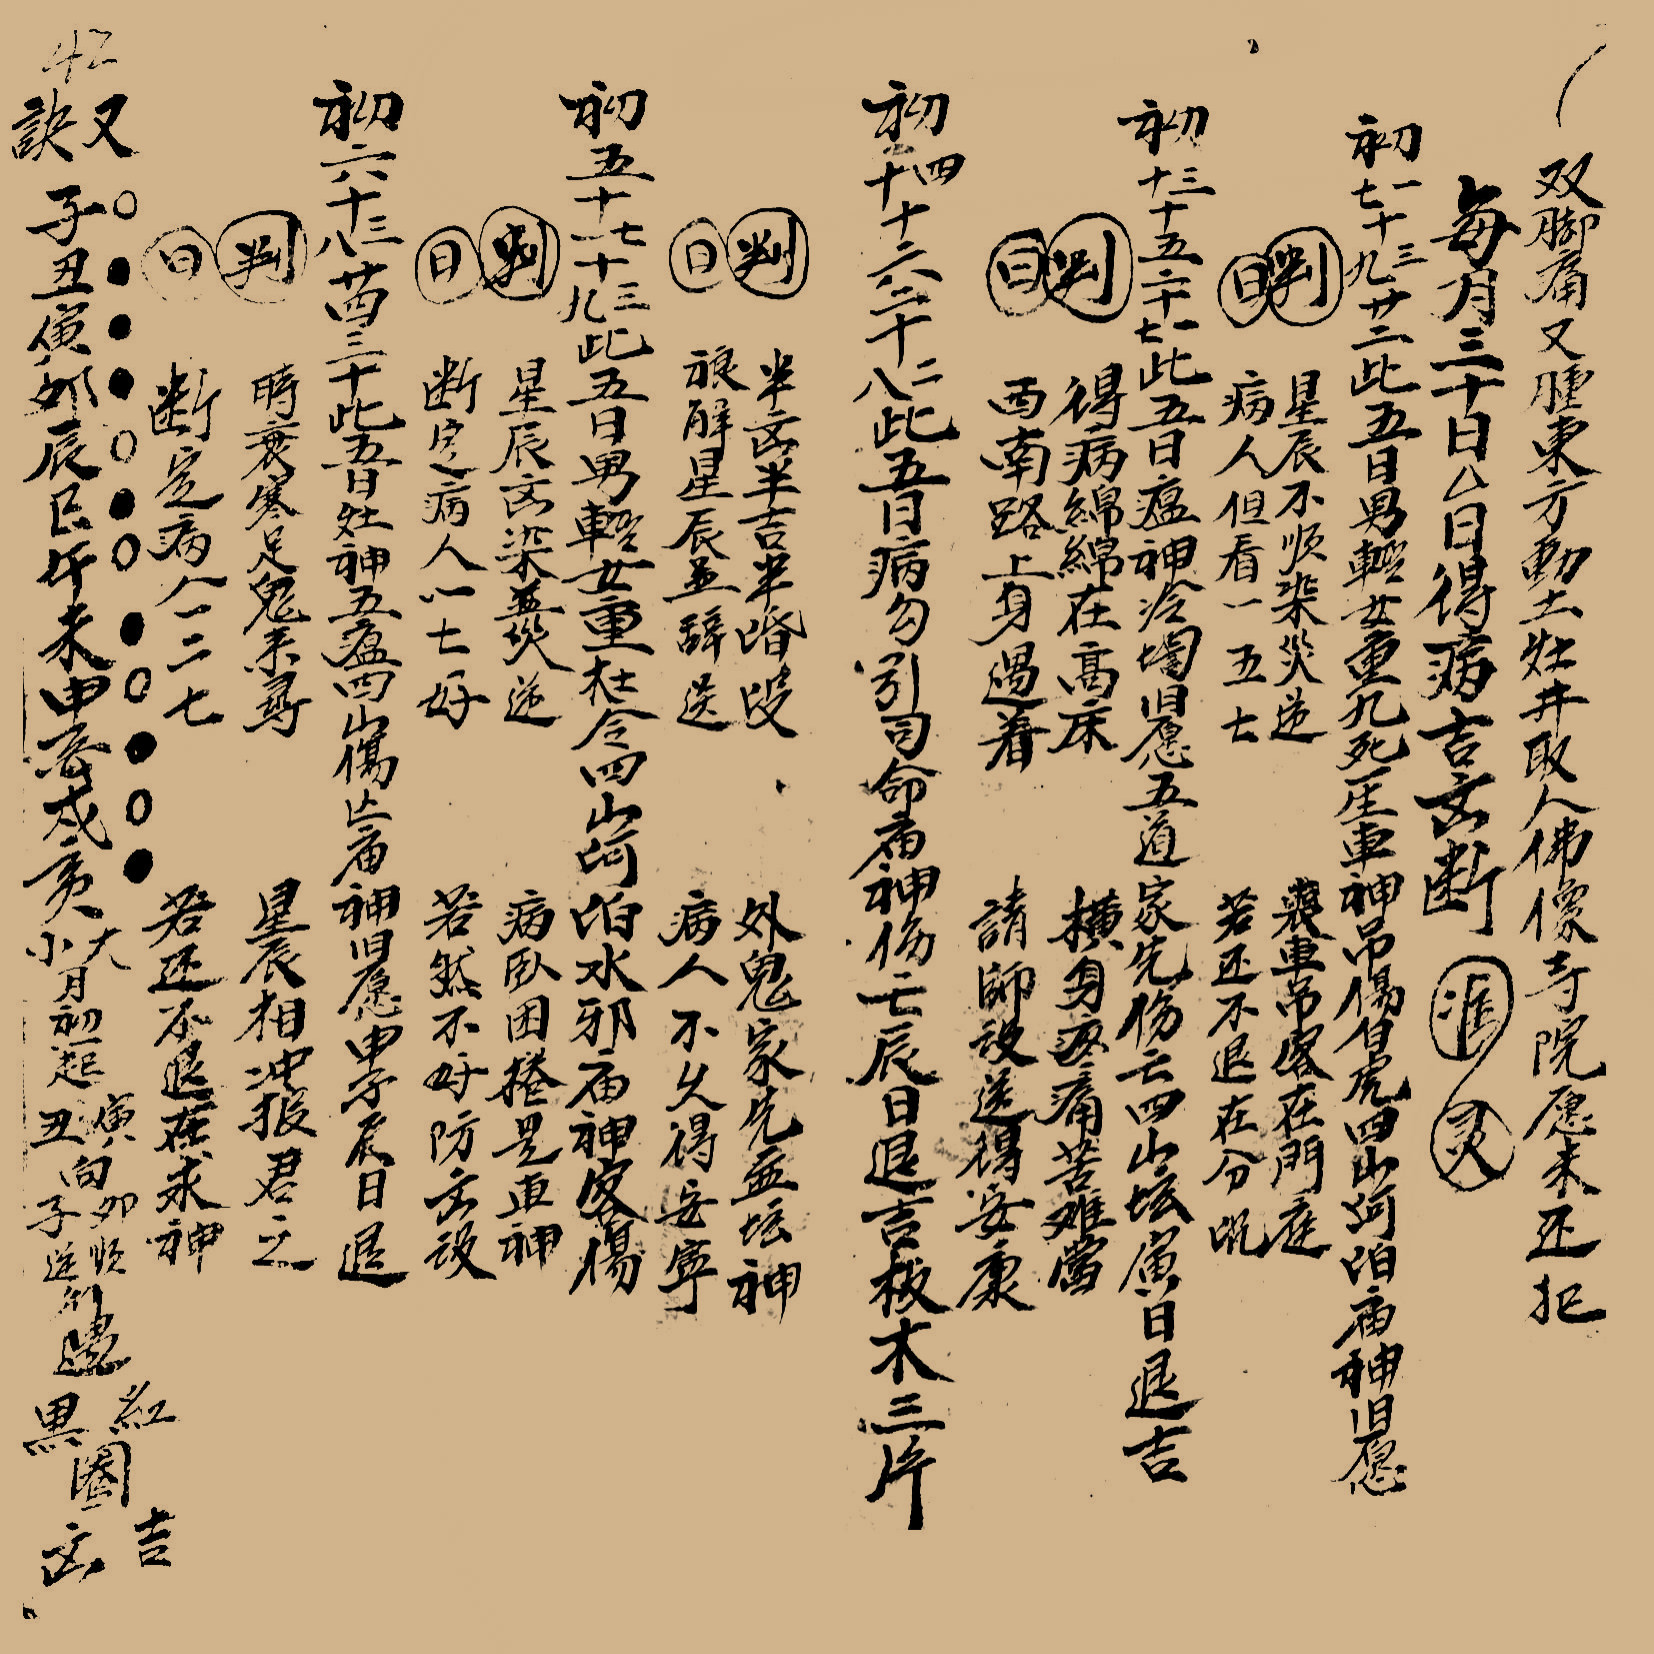 双脚痛又腫東方動土灶井取人佛像寺院愿未还犯
每月三十日公日得病吉凶断 准 灵
初一七十三十九廿二此五日男輕女重九死一生車神吊傷白虎四山河泊庙神旧愿
判曰 星辰不顺染災迍 喪車吊客在門庭
病人但看一五七 若还不退在分
初三十三十五二十一七此五日瘟神冷壇旧愿五道家先伤亡四山坛寅日退吉
判曰 得病綿綿在高床 横身疼痛苦难當
西南路上身遇着 請師설送得安康
初四十十六二十二八此五日病勾引司命庙神伤亡辰日退吉板木三片
判曰 半凶半吉半昏 外鬼家先並坛神
禳解星辰並辞送 病人不久得安寧
初五十一七十九三此五日男輕女重灶令四山河泊水邪庙神客傷
判曰 星辰凶染並災迍 病卧困捲是直神
断定病人一七好 若然不好防凶
初六十三八廿四三十此五日灶神五瘟四山傷亡庙神旧愿申子辰日退
判曰 時衰寒足鬼来尋 星辰相冲报君之
断定病人一二七 若还不退在求神
42
又訣 ○●●●○●○●○●○●
子丑寅卯辰巳午未申酉戌亥 大小月初一起 寅丑向卯子顺逆行遇 紅黑圈 吉凶